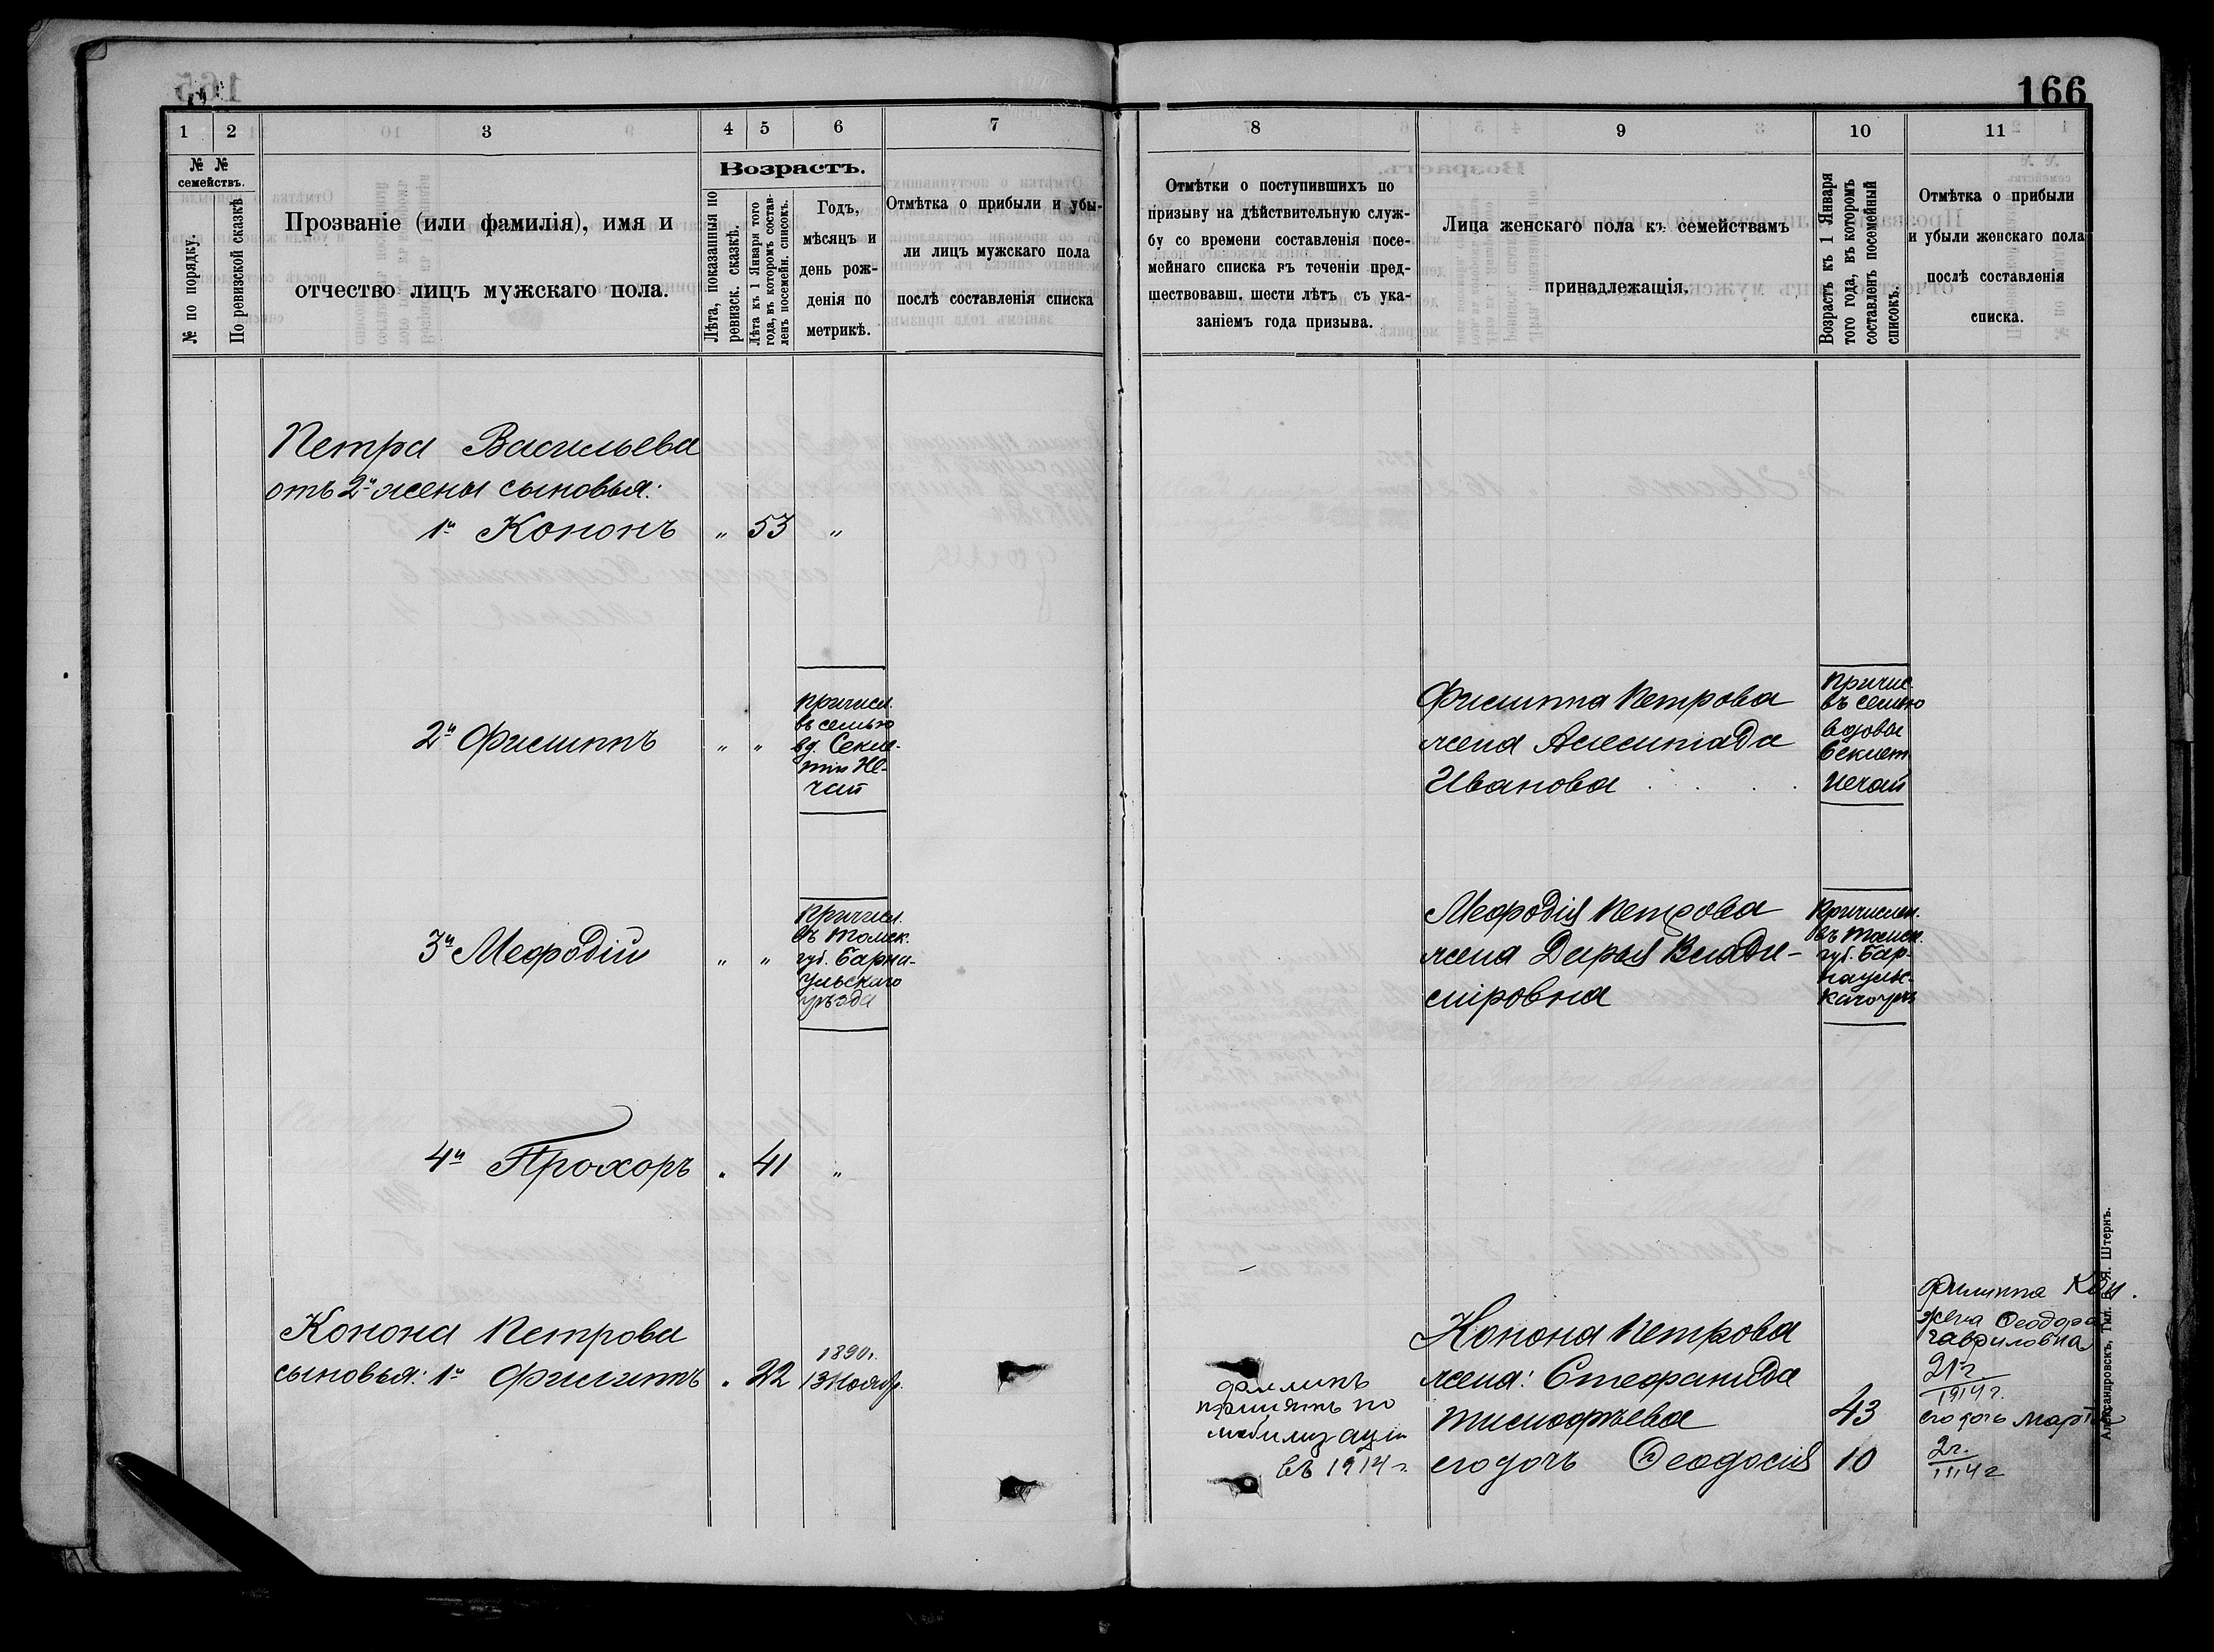 166
1 2 3 4 5 6 7
№ № семействъ.
№ по порядку.
По ревизской сказкѣ
Прозваніе (или фамилія), имя и
отчество лицъ мужскаго пола.
Возрастъ.
Лѣта, показанныя по
ревизск. сказкѣ.
Лѣта къ 1 Января того
года, въ которомъ состав-
ленъ посемейн. списокъ.
Годъ,
мѣсяцъ и
день рож-
денія по
метрикѣ.
Отмѣтка о прибыли и убы-
ли лицъ мужскаго пола
послѣ составленія списка
8 9 10 11
Отмѣтки о поступившихъ по
призыву на дѣйствительную служ-
бу со времени составленія посе-
мейнаго списка въ теченіи пред-
шествовавш. шести лѣтъ съ ука-
заніемъ года призыва.
Лица женскаго пола къ семействамъ
принадлежащія.
Возрастъ къ 1 Января
того года, въ которомъ
составленъ посемейный
списокъ.
Отмѣтка о прибыли
и убыли женскаго пола
послѣ составленія
списка.
Петра Васильева
отъ 2й жены сыновья:
1й Кононъ " 53 "
2й Филиппъ " "
Причисл.
въ семью
вд.
Филиппа Петрова
жена
Иванова
Причис.
въ семью
вдовы
Нечай
3й Мефодій " "
Причисл.
въ Томск.
губ. Барна-
ульскаго
уѣзда
Мефодія Петрова
жена Дарья Влади-
мировна
Причислен.
въ Томск.
губ. Бар-
наульс-
каго
4й Прохоръ " 41 "
Конона Петрова
сыновья: 1й Филиппъ " 22
1890г.
13 Ноябр.
Филипъ
принятъ по
мобилизаціи
въ 1914 г.
Конона Петрова
жена: Стефанида
Тимофѣева 43
его дочь Феодосія 10
Филиппа Кон.
жена Феодора
Гавриловна
21 г.
1914 г.
его дочь Марфа
2 г.
1914 г
Александровскъ, Тип. В. Я. Штернъ.